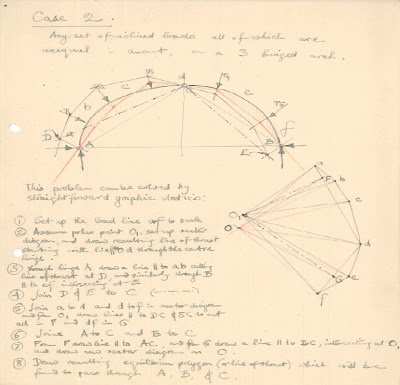 Case 2.
Any set of inclined loads all of which are
unequal in amount, on a 3 hinged arch.
d
c
e
b
a
D
A
B
E
f
This problem can be solved by
straightforward graphic statics:
① Set up the load line a-f to scale
② Assume polar point O, set up vector
diagram, and draw resulting line of thrust
starting with line O d through the centre
hinge.
③ Through hinge A draw a line // to ab cutting
line of thrust at D, and similarly through B
// to ef intersecting at E
④ Join D & E to C
⑤ Join a & d and d to f in vector diagram
and from O, draw lines // to DC & EC to cut
ad in F and df in G.
⑥ Join A to C and B to C
⑦ From F draw line // to AC, and from G draw a line // to BC, intersecting at O,
and draw new vector diagram on O.
⑧ Draw resulting equilibrium polygon (or line of thrust) which will be
found to pass through A, B, & C.
a
F
b
c
O
O
d
G
e
f